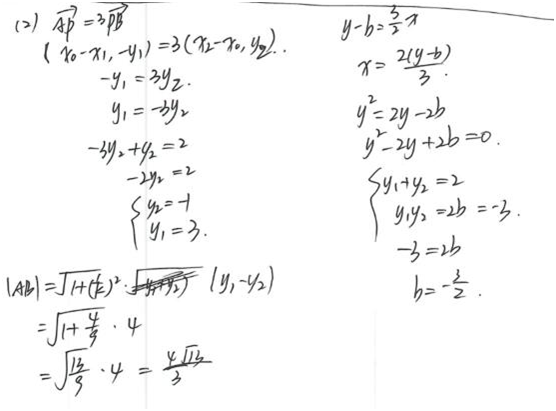 (2) \overrightarrow{AP}=3\overrightarrow{PB}
(x_0-x_1, -y_1)=3(x_2-x_0, y_2).
-y_1=3y_2.
y_1=-3y_2
-3y_2+y_2=2
-2y_2=2
\begin{cases} y_2=-1 \\ y_1=3. \end{cases}
|AB|=\sqrt{1+(\frac{1}{k})^2} \cdot |y_1-y_2|
=\sqrt{1+\frac{4}{9}} \cdot 4
=\sqrt{\frac{13}{9}} \cdot 4 = \frac{4\sqrt{13}}{3}
y-b=\frac{3}{2}x
x=\frac{2(y-b)}{3}.
y^2=2y-2b
y^2-2y+2b=0.
\begin{cases} y_1+y_2=2 \\ y_1y_2=2b=-3. \end{cases}
-3=2b
b=-\frac{3}{2}.